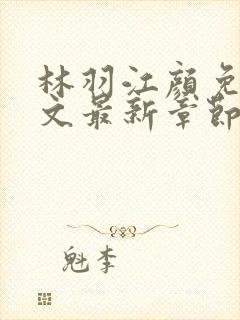 林羽江颜免
文最新章节
魁李